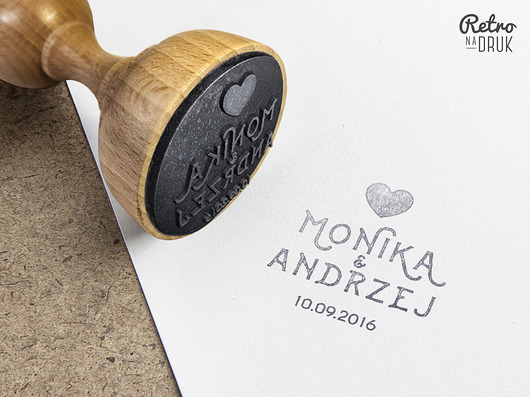 Retro
NA DRUK
MONIKA
&
ANDRZEJ
MONIKA
&
ANDRZEJ
10.09.2016